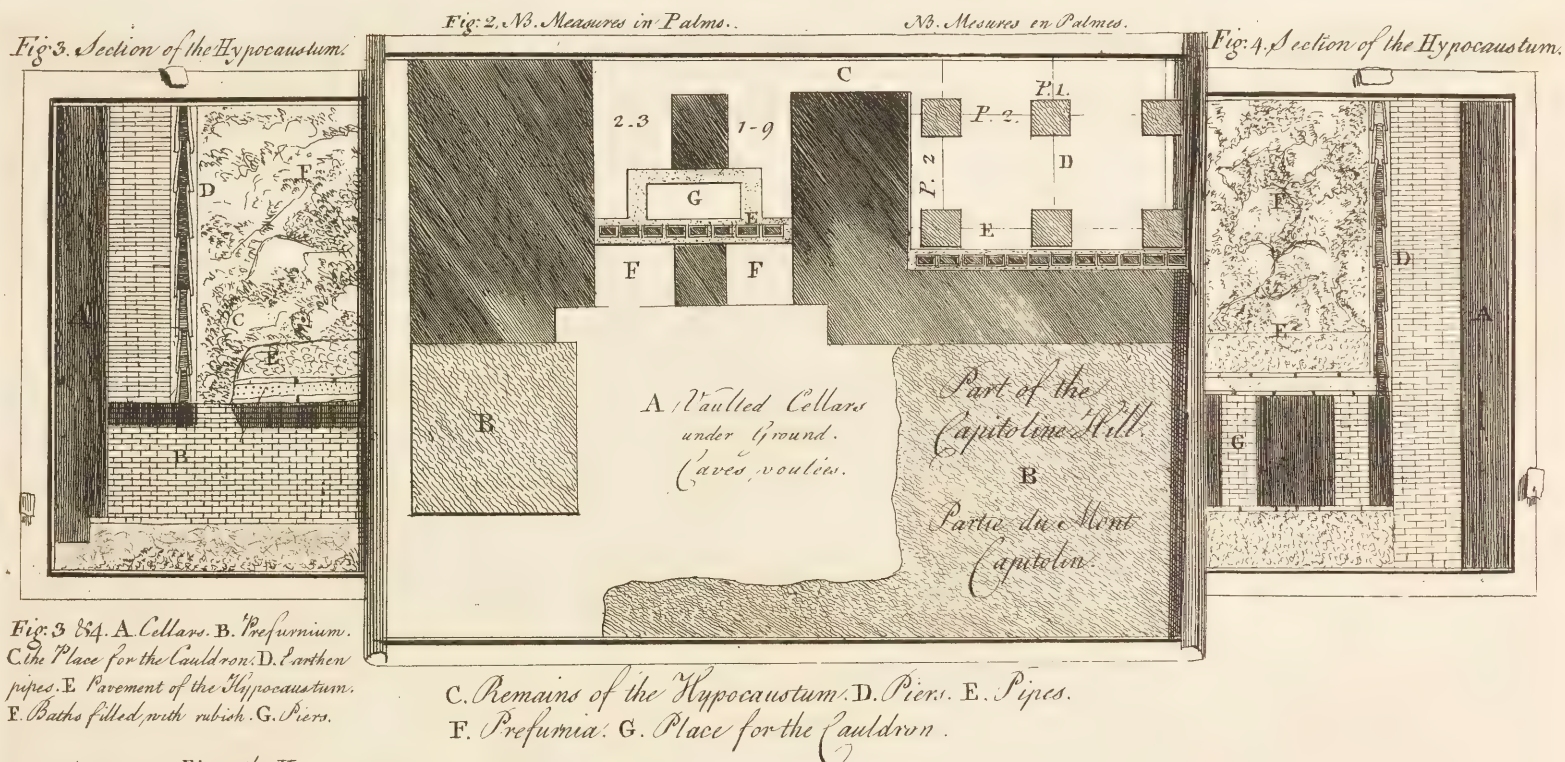 Fig: 2. NB. Measures in Palms. NB. Mesures en Palmes.
Fig: 3. Section of the Hypocaustum.
Fig: 4. Section of the Hypocaustum.
C
P. 1.
2.3
1-9
P. 2.
P. 2
D
G
E
E
F
F
A Vaulted Cellars
under Ground.
Caves voutées.
B
Part of the
Capitoline Hill.
B
Partie du Mont
Capitolin.
D
F
A
C
E
B
F
F
D
A
G
Fig: 3 & 4. A. Cellars. B. Prefurnium.
C. the Place for the Cauldron. D. Earthen
pipes. E Pavement of the Hypocaustum.
F. Baths filled with rubish. G. Piers.
C. Remains of the Hypocaustum. D. Piers. E. Pipes.
F. Prefurnia. G. Place for the Cauldron.